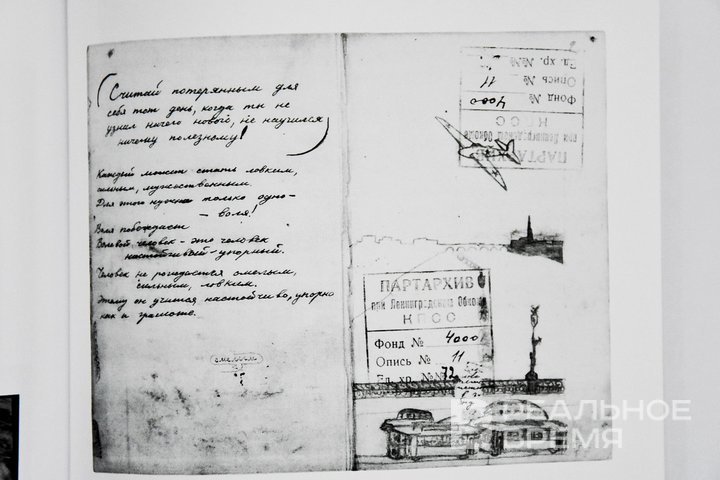 Считай потерянным для
себя тот день, когда ты не
узнал ничего нового, не научился
ничему полезному!
Каждый может стать ловким,
сильным, мужественным.
Для этого нужна только одно-
- воля!
Воля побеждает
Волевой человек - это человек
настойчивый - упорный.
Человек не рождается смелым,
сильным, ловким.
Этому он учится настойчиво, упорно
как и грамоте.
смелым
Ед. хр. №№
Опись № 11
Фонд № 4000
КПСС
при Ленинградском Обкоме
ПАРТАРХИВ
ПАРТАРХИВ
при Ленинградском Обкоме
КПСС
Фонд № 4000
Опись № 11
Ед. хр. №№ 72
РЕАЛЬНОЕ
ВРЕМЯ